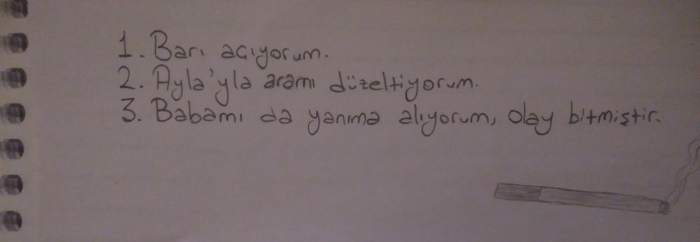 1. Barı açıyorum.
2. Ayla'yla aramı düzeltiyorum.
3. Babamı da yanıma alıyorum, olay bitmiştir.